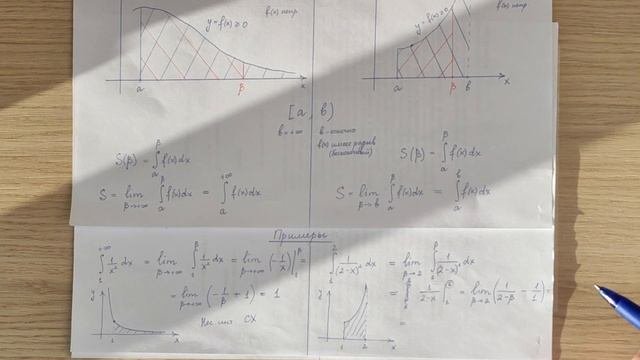 f(x) непр.
y = f(x) ≥ 0
a β x
f(x) непр
y = f(x) ≥ 0
a β в x
[a, в)
в = +∞ в - конечно
f(x) имеет разрыв
(бесконечный)
S(β) = ∫ₐ^β f(x)dx
S(β) = ∫ₐ^β f(x)dx
S = lim_{β→+∞} ∫ₐ^β f(x)dx = ∫ₐ^{+∞} f(x)dx
S = lim_{β→в} ∫ₐ^β f(x)dx = ∫ₐ^в f(x)dx
Примеры
∫₁^{+∞} 1/x² dx = lim_{β→+∞} ∫₁^β 1/x² dx = lim_{β→+∞} (-1/x)|₁^β =
= lim_{β→+∞} (-1/β + 1) = 1
y
1 x
Нес. инт. СХ
∫₁² 1/(2-x)² dx = lim_{β→2} ∫₁^β 1/(2-x)² dx
= 1/(2-x) = lim_{β→2} (1/(2-β) - 1/1) =
=
y
1 2 x